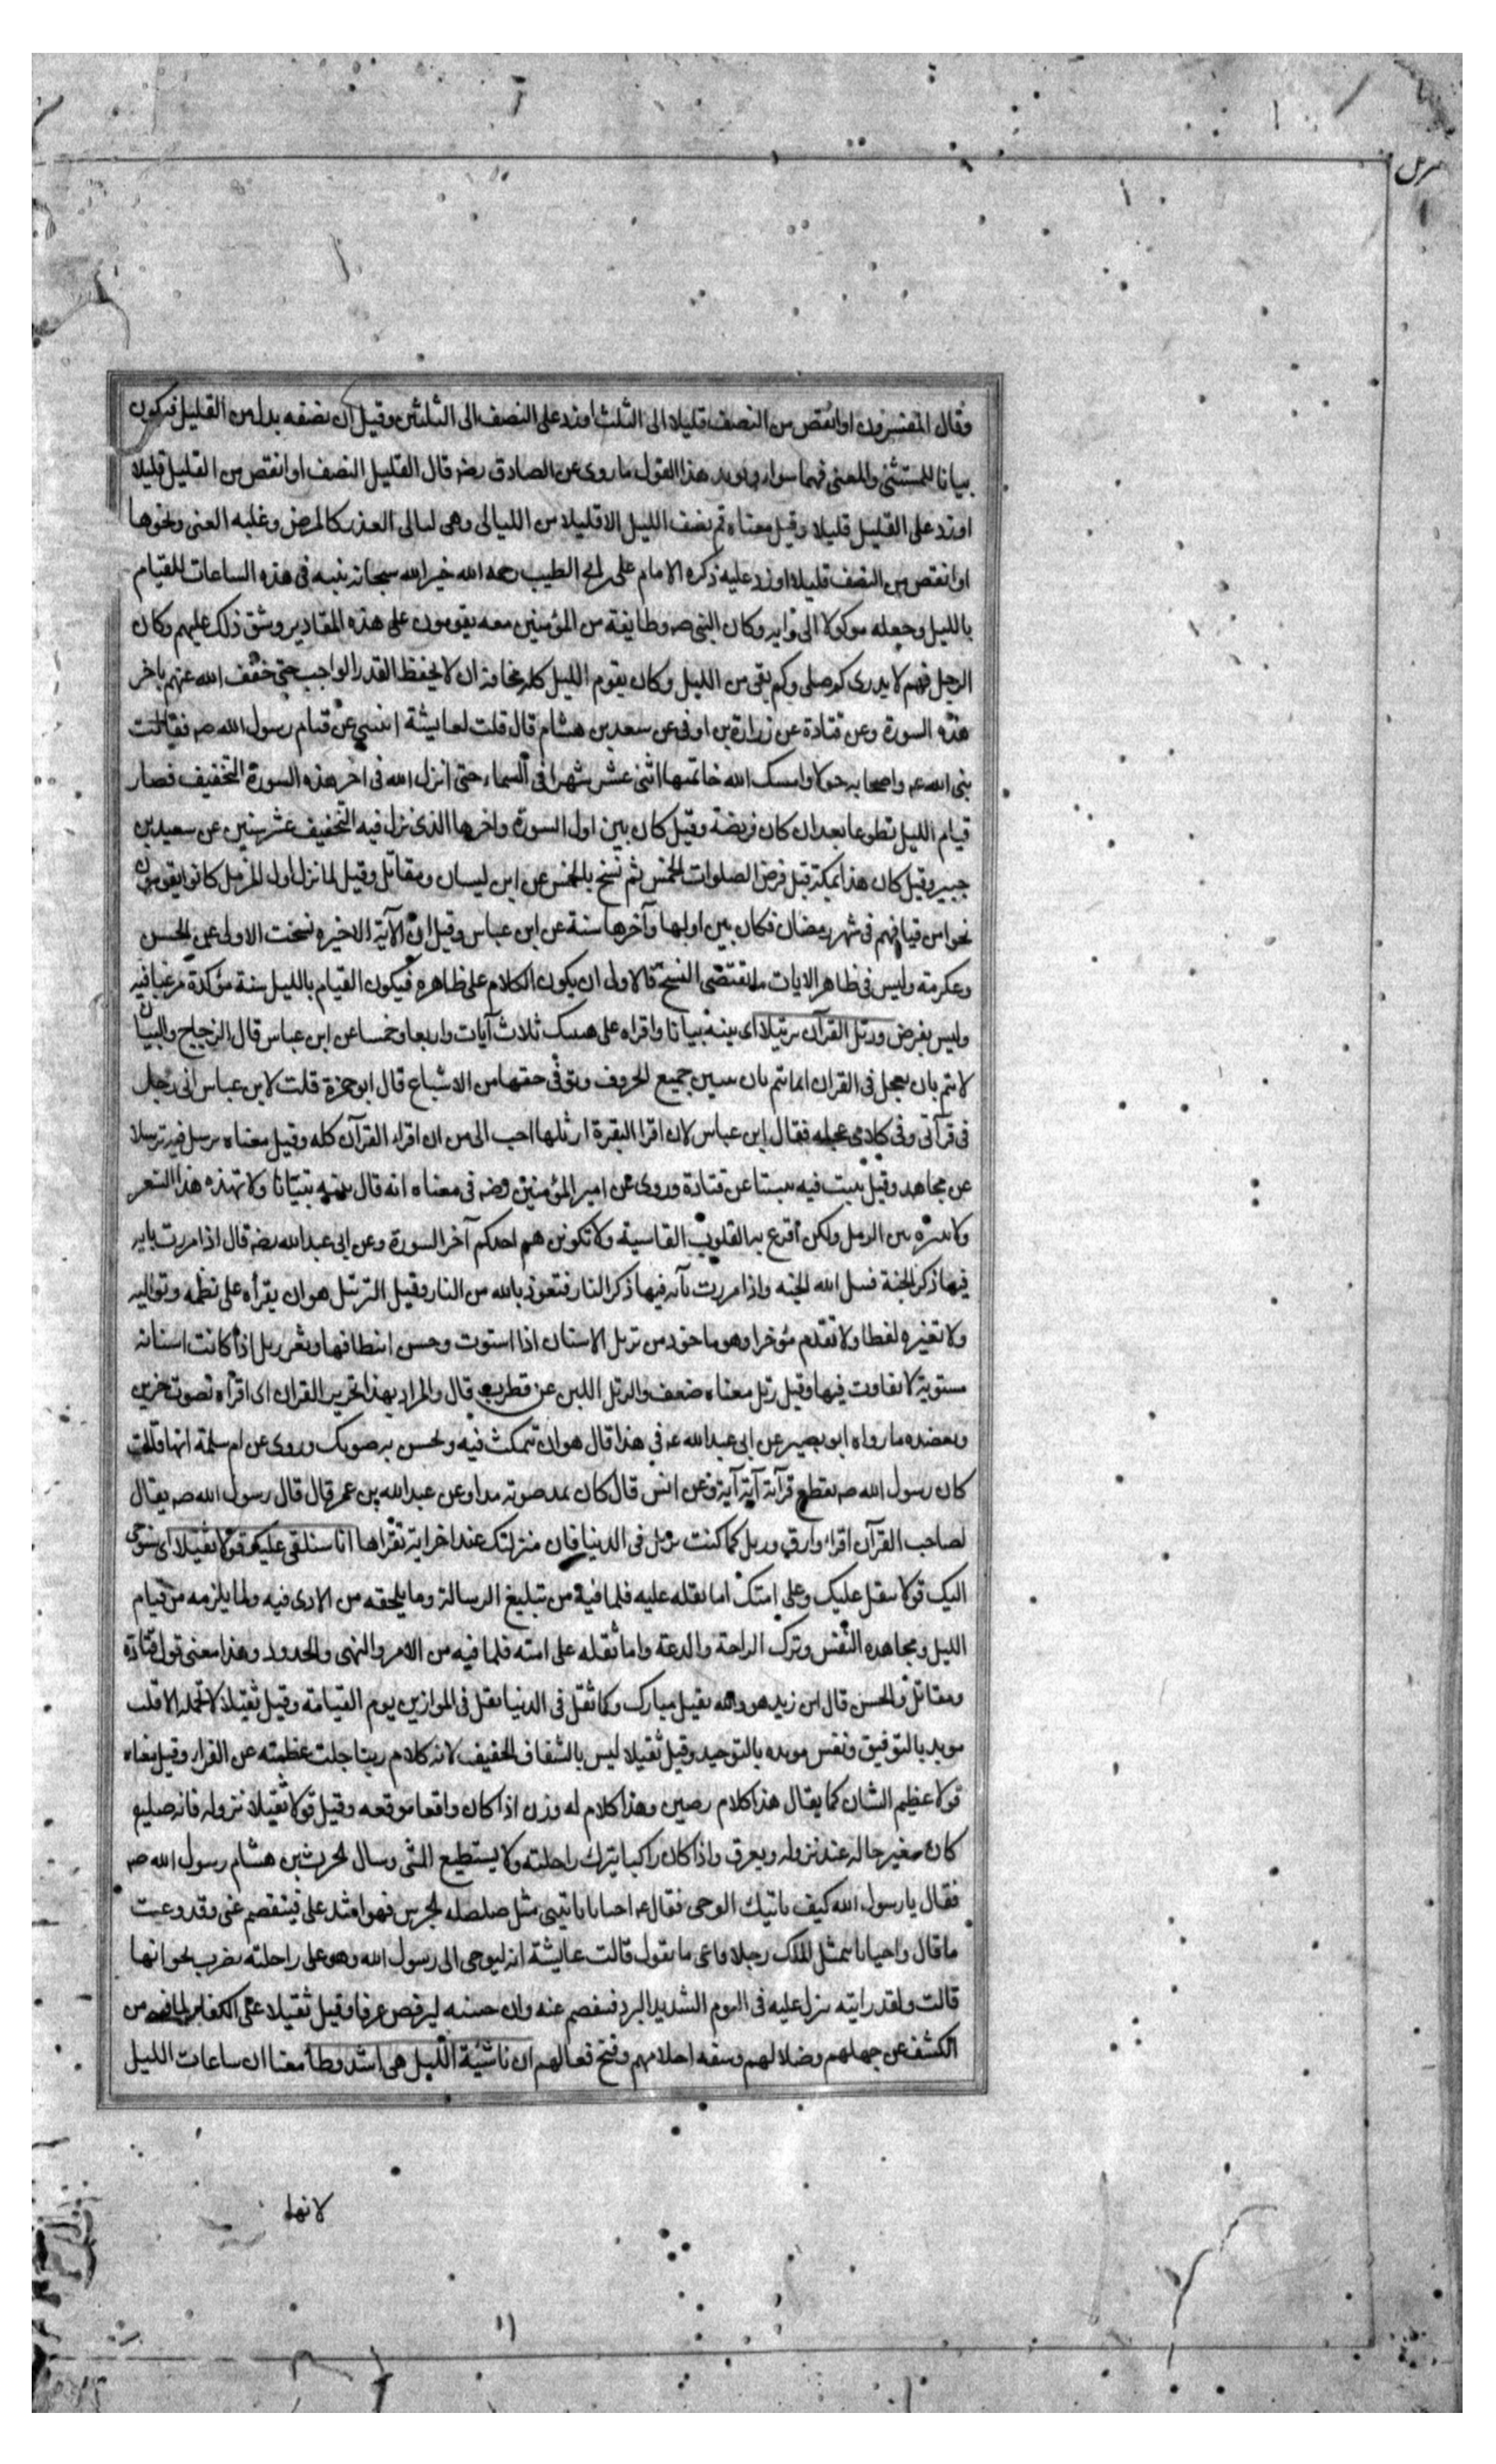 مزمل
وقال المفسرون او انقص من النصف قليلا الى الثلث او زد على النصف الى الثلثين وقيل ان نصفه بدل من القليل فيكون
بيانا للمستثنى والمعنى فيهما سواء ويويد هذا القول ما روى عن الصادق رضه قال القليل النصف او انقص من القليل قليلا
او زد على القليل قليلا وقيل معناه قم نصف الليل الا قليلا من الليالى وهى ليالى العذر كالمرض وغلبه العنى ونحوها
او انقص من النصف قليلا او زد عليه ذكره الامام على بن ابى الطيب رحمه الله خير الله سبحانه نبيه فى هذه الساعات للقيام
بالليل وجعله موكولا الى رايه وكان النبى صه وطايفة من المؤمنين معه يقومون على هذه المقادير وشق ذلك عليهم وكان
الرجل منهم لا يدرى كم صلى وكم بقى من الليل وكان يقوم الليل كله مخافة ان لا يحفظ القدر الواجب حتى خفف الله عنهم باخر
هذه السورة وعن قتادة عن زرارة بن اوفى عن سعد بن هشام قال قلت لعايشة انبئينى عن قيام رسول الله صه فقالت
نبى الله عه واصحابه حولا وامسك الله خاتمتها اثنى عشر شهرا فى السماء حتى انزل الله فى اخر هذه السورة التخفيف فصار
قيام الليل تطوعا بعد ان كان فريضة وقيل كان بين اول السورة واخرها الذى نزل فيه التخفيف عشر سنين عن سعيد بن
جبير وقيل كان هذا بمكة قبل فرض الصلوات الخمس ثم نسخ بالخمس عن ابن كيسان ومقاتل وقيل لما نزل اول المزمل كانوا يقومون
نحوا من قيامهم فى شهر رمضان فكان بين اولها وآخرها سنة عن ابن عباس وقيل ان الآية الاخيره نسخت الاولى عن الحسن
وعكرمة وليس فى ظاهر الايات ما يقتضى النسخ فالاولى ان يكون الكلام على ظاهره فيكون القيام بالليل سنة مؤكدة مرغبا فيه
وليس بفرض ورتل القرآن ترتيلا اى بينه بيانا واقراه على هينتك ثلاث آيات واربعا وخمسا عن ابن عباس قال الزجاج والبيان
لا يتم بان يعجل فى القران انما يتم بان يبين جميع الحروف ويوفى حقها من الاشباع قال ابو حمزة قلت لابن عباس انى رجل
فى قرآتى وفى كلامى عجله فقال ابن عباس لان اقرا البقرة ارتلها احب الى من ان اقراء القرآن كله وقيل معناه ترسل فيه ترسلا
عن مجاهد وقيل تثبت فيه تثبتا عن قتادة وروى عن امير المؤمنين رضه فى معناه انه قال بينه تبيانا ولا تهذه هذا الشعر
ولا تنثره نثر الرمل ولكن اقرع به القلوب القاسية ولا تكونن هم احدكم آخر السورة وعن ابى عبد الله رضه قال اذا مررت بايه
فيها ذكر الجنة فسل الله الجنه واذا مررت بآيه فيها ذكر النار فتعوذ بالله من النار وقيل الترتيل هو ان يقرأه على نظمه وتواليه
ولا تغيره لفظا ولا تقدم مئوخرا وهو ماخوذ من ترتل الاسنان اذا استوت وحسن انتظامها وثغر رتل اذا كانت اسنانه
مستوية لا تفاوت فيها وقيل رتل معناه ضعف والرتل اللين عن قطرب قال والمراد بهذا تحزين القران اى اقرأه بصوت حزين
ويعضده ما رواه ابو بصير عن ابى عبد الله عه فى هذا قال هو ان تتمكث فيه وتحسن به صوتك وروى عن ام سلمة انها قالت
كان رسول الله صه يقطع قرآته آية آية وعن انس قال كان يمد صوته مدا وعن عبد الله بن عمر قال قال رسول الله صه يقال
لصاحب القرآن اقراء وارق ورتل كما كنت ترتل فى الدنيا فان منزلتك عند اخر اية تقراها انا سنلقى عليك قولا ثقيلا اى سنوحى
اليك قولا يثقل عليك وعلى امتك اما ثقله عليه فلما فيه من تبليغ الرسالة وما يلحقه من الاذى فيه ولما يلزمه من قيام
الليل ومجاهده النفس وترك الراحة والدعة واما ثقله على امته فلما فيه من الامر والنهى والحدود وهذا معنى قول قتادة
ومقاتل والحسن قال ابن زيد هو والله ثقيل مبارك وكما ثقل فى الدنيا يثقل فى الموازين يوم القيامة وقيل ثقيلا لا يحمله الا قلب
مويد بالتوفيق ونفس مويده بالتوحيد وقيل ثقيلا ليس بالسفساف الخفيف لانه كلام ربنا جلت عظمته عن الفراء وقيل معناه
قولا عظيم الشان كما يقال هذا كلام رصين وهذا كلام له وزن اذا كان واقعا موقعه وقيل قولا ثقيلا نزوله فانه صليع
كان يتغير حاله عند نزوله ويعرق واذا كان راكبا يترك راحلته ولا يستطيع المشى وسال الحرث بن هشام رسول الله صه
فقال يا رسول الله كيف ياتيك الوحى فقال عه احيانا ياتينى مثل صلصله الجرس فهو اشد على فينفصم عنى وقد وعيت
ما قال واحيانا يتمثل الملك رجلا فاعى ما يقول قالت عايشة انه ليوحى الى رسول الله وهو على راحلته يضرب بجرانها
قالت ولقد رايته ينزل عليه فى اليوم الشديد البرد فيفصم عنه وان جبينه ليرفض عرقا وقيل ثقيلا على الكفار لما فيه من
الكشف عن جهلهم وضلالهم وسفه احلامهم وقبح فعالهم ان ناشئة الليل هى اشد وطأ معناه ان ساعات الليل
لانها